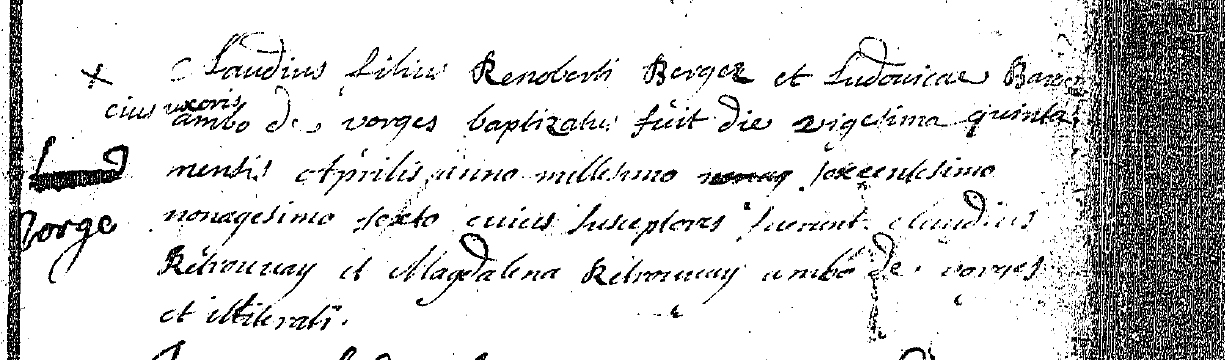 Claudius filius Renoberti Berger et Ludovicae
cius uxoris
ambo de vorges baptizatus fuit die vigesima quinta
mensis Aprilis anno millesimo sexcentesimo
nonagesimo sexto cuius susceptores fuerunt Claudius
Vorge
Rétrouvay et Magdalena Rétrouvay ambo de vorges
et illiterati.